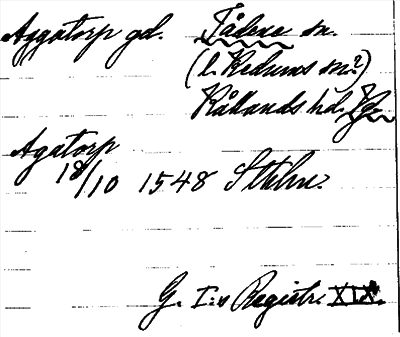 Aggatorp gd. Tådene sn.
(l. Kedums sn?)
Kållands hd. Vg.
Agatorp
18/10 1548 Sthlm.
G. I:s Registr. XIX.